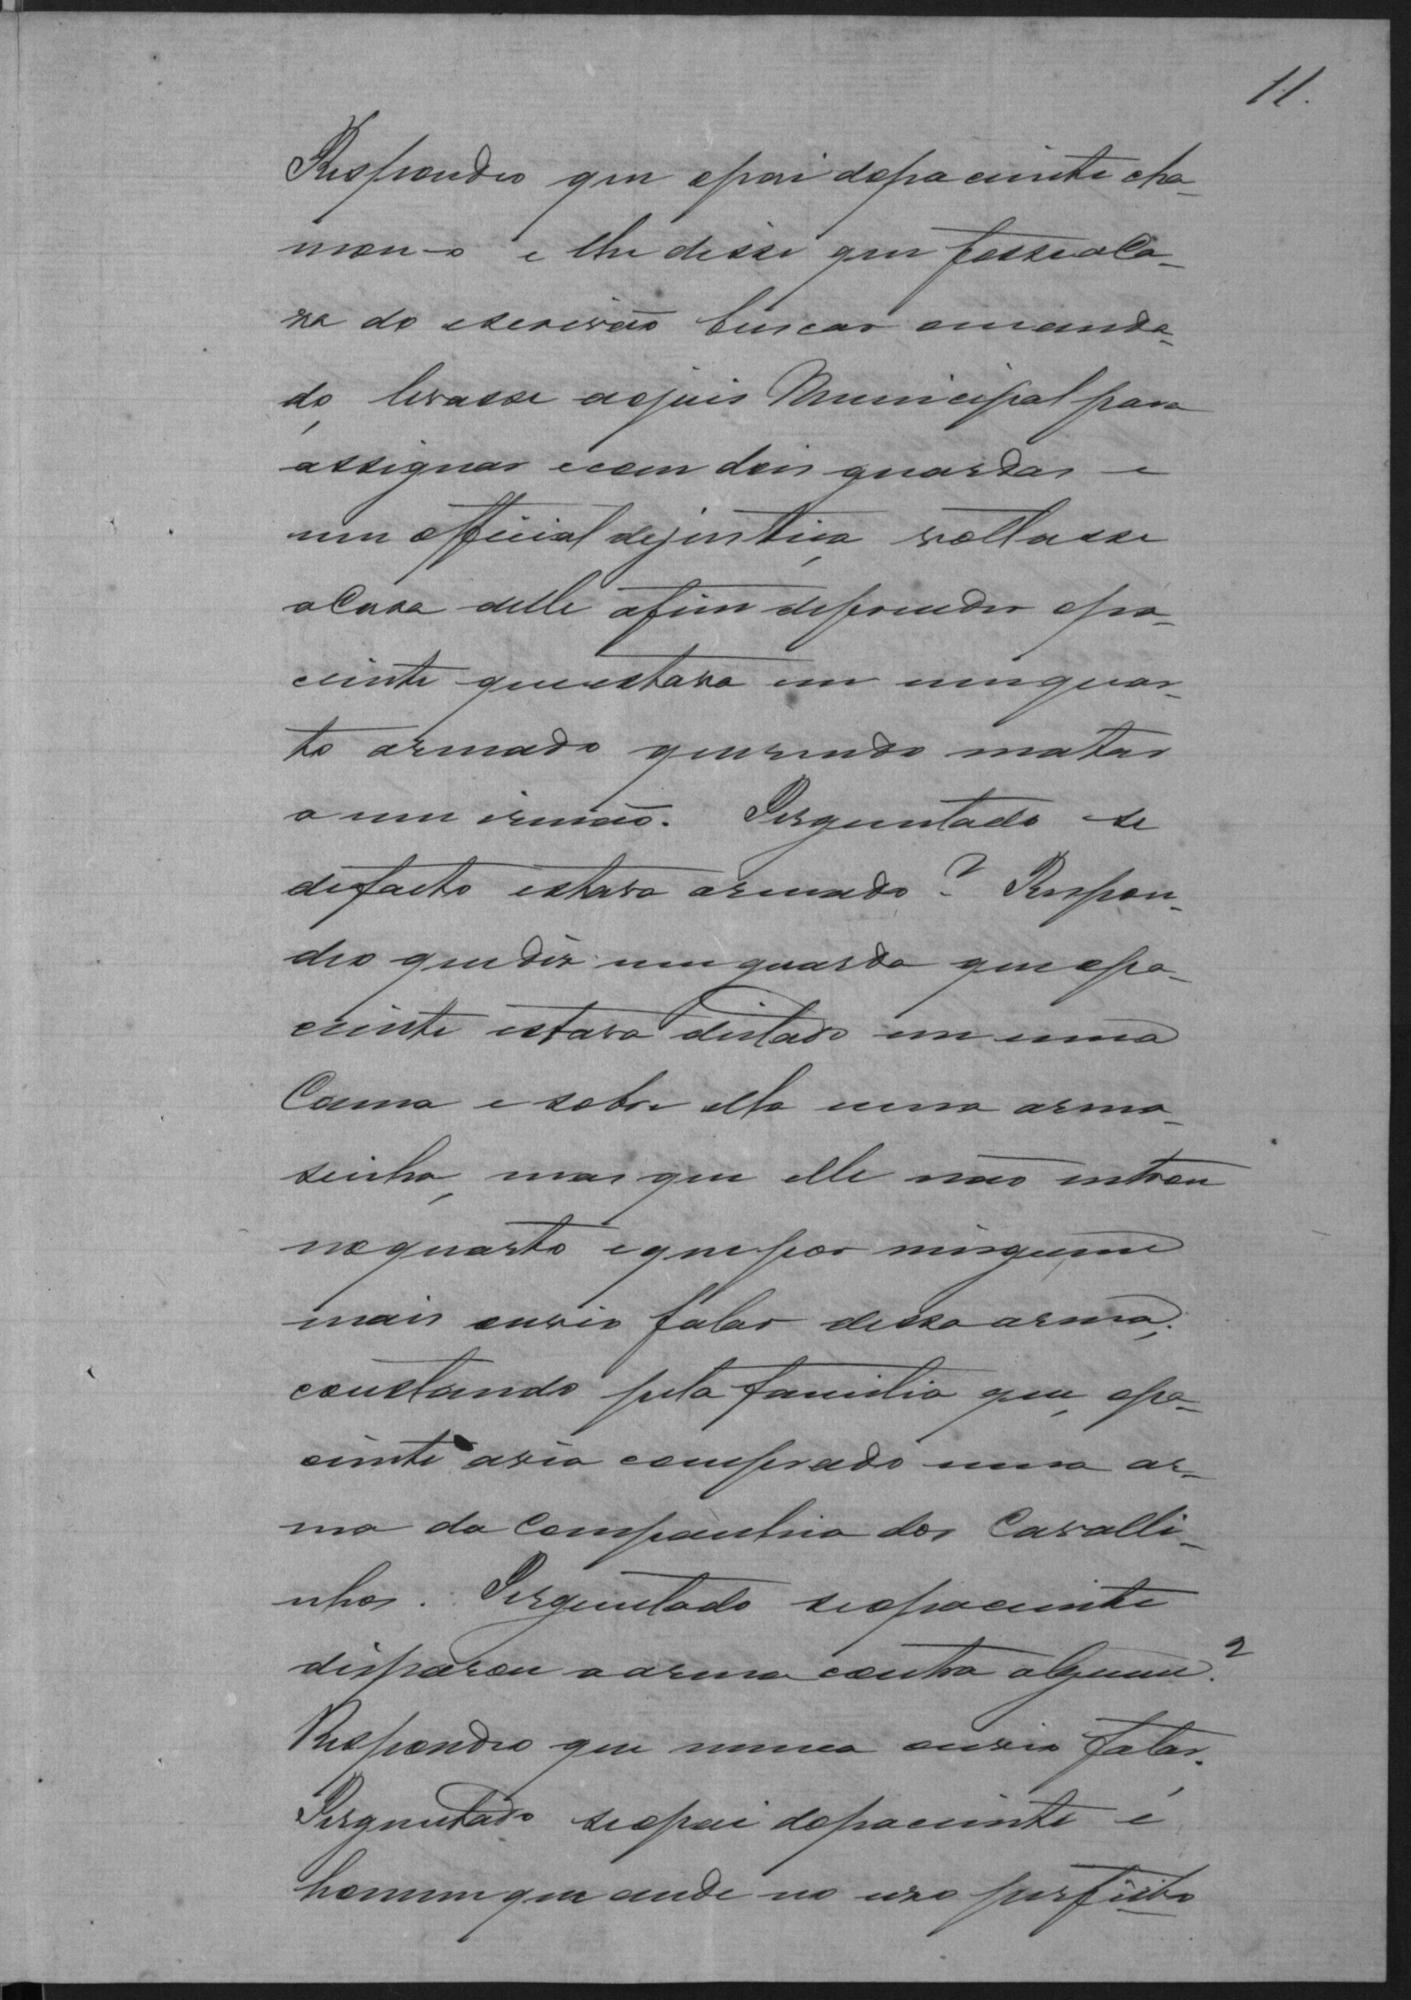 11.
Respondeo que opai dopaciente cha-
mou-o e lhe disse que fosse a Ca-
za do escrivão buscar omanda-
do, levasse aojuis Municipal para
assignar ecom dois guardas e
um official dejustiça voltasse
a Casa delle afim deprender opa-
ciente queestava em umquar-
to armado querendo matar
a um irmão. Perguntado se
defacto estava armado? Respon-
deo quediz um guarda que opa-
ciente estava deitado em uma
Cama e sobre ella uma arma-
sinha, mas que elle não entrou
noquarto eque por ninguem
mais ouvio falar dessa arma;
constando pela familia que, opa-
ciente avia comprado uma ar-
ma da Companhia dos Cavalli-
nhos. Perguntado seopaciente
disparou a arma contra alguem?
Respondeo que nunca ouvio falar.
Perguntado seopai dopaciente é
homem que ande no uso perfeito